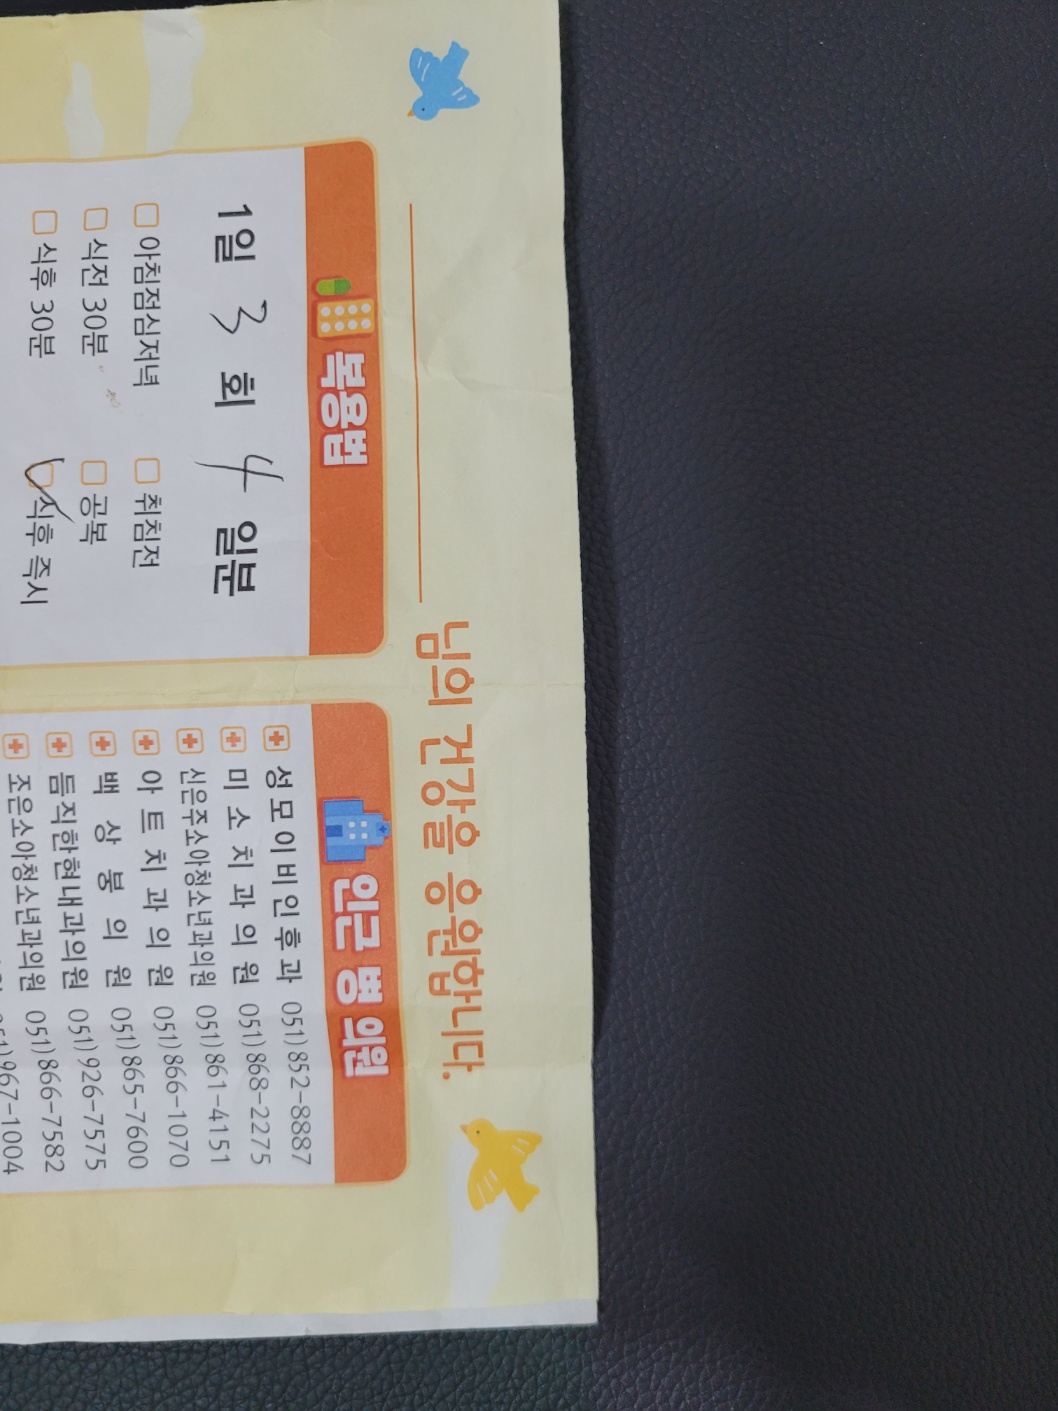 님의 건강을 응원합니다.
복용법
1일 3 회 4 일분
아침점심저녁 취침전
식전 30분 공복
식후 30분 식후 즉시
인근 병 의원
성모이비인후과 051) 852-8887
미소치과의원 051) 868-2275
신은주소아청소년과의원 051) 861-4151
아트치과의원 051) 866-1070
백상봉의원 051) 865-7600
듬직한현내과의원 051) 926-7575
조은소아청소년과의원 051) 866-7582
051) 967-1004